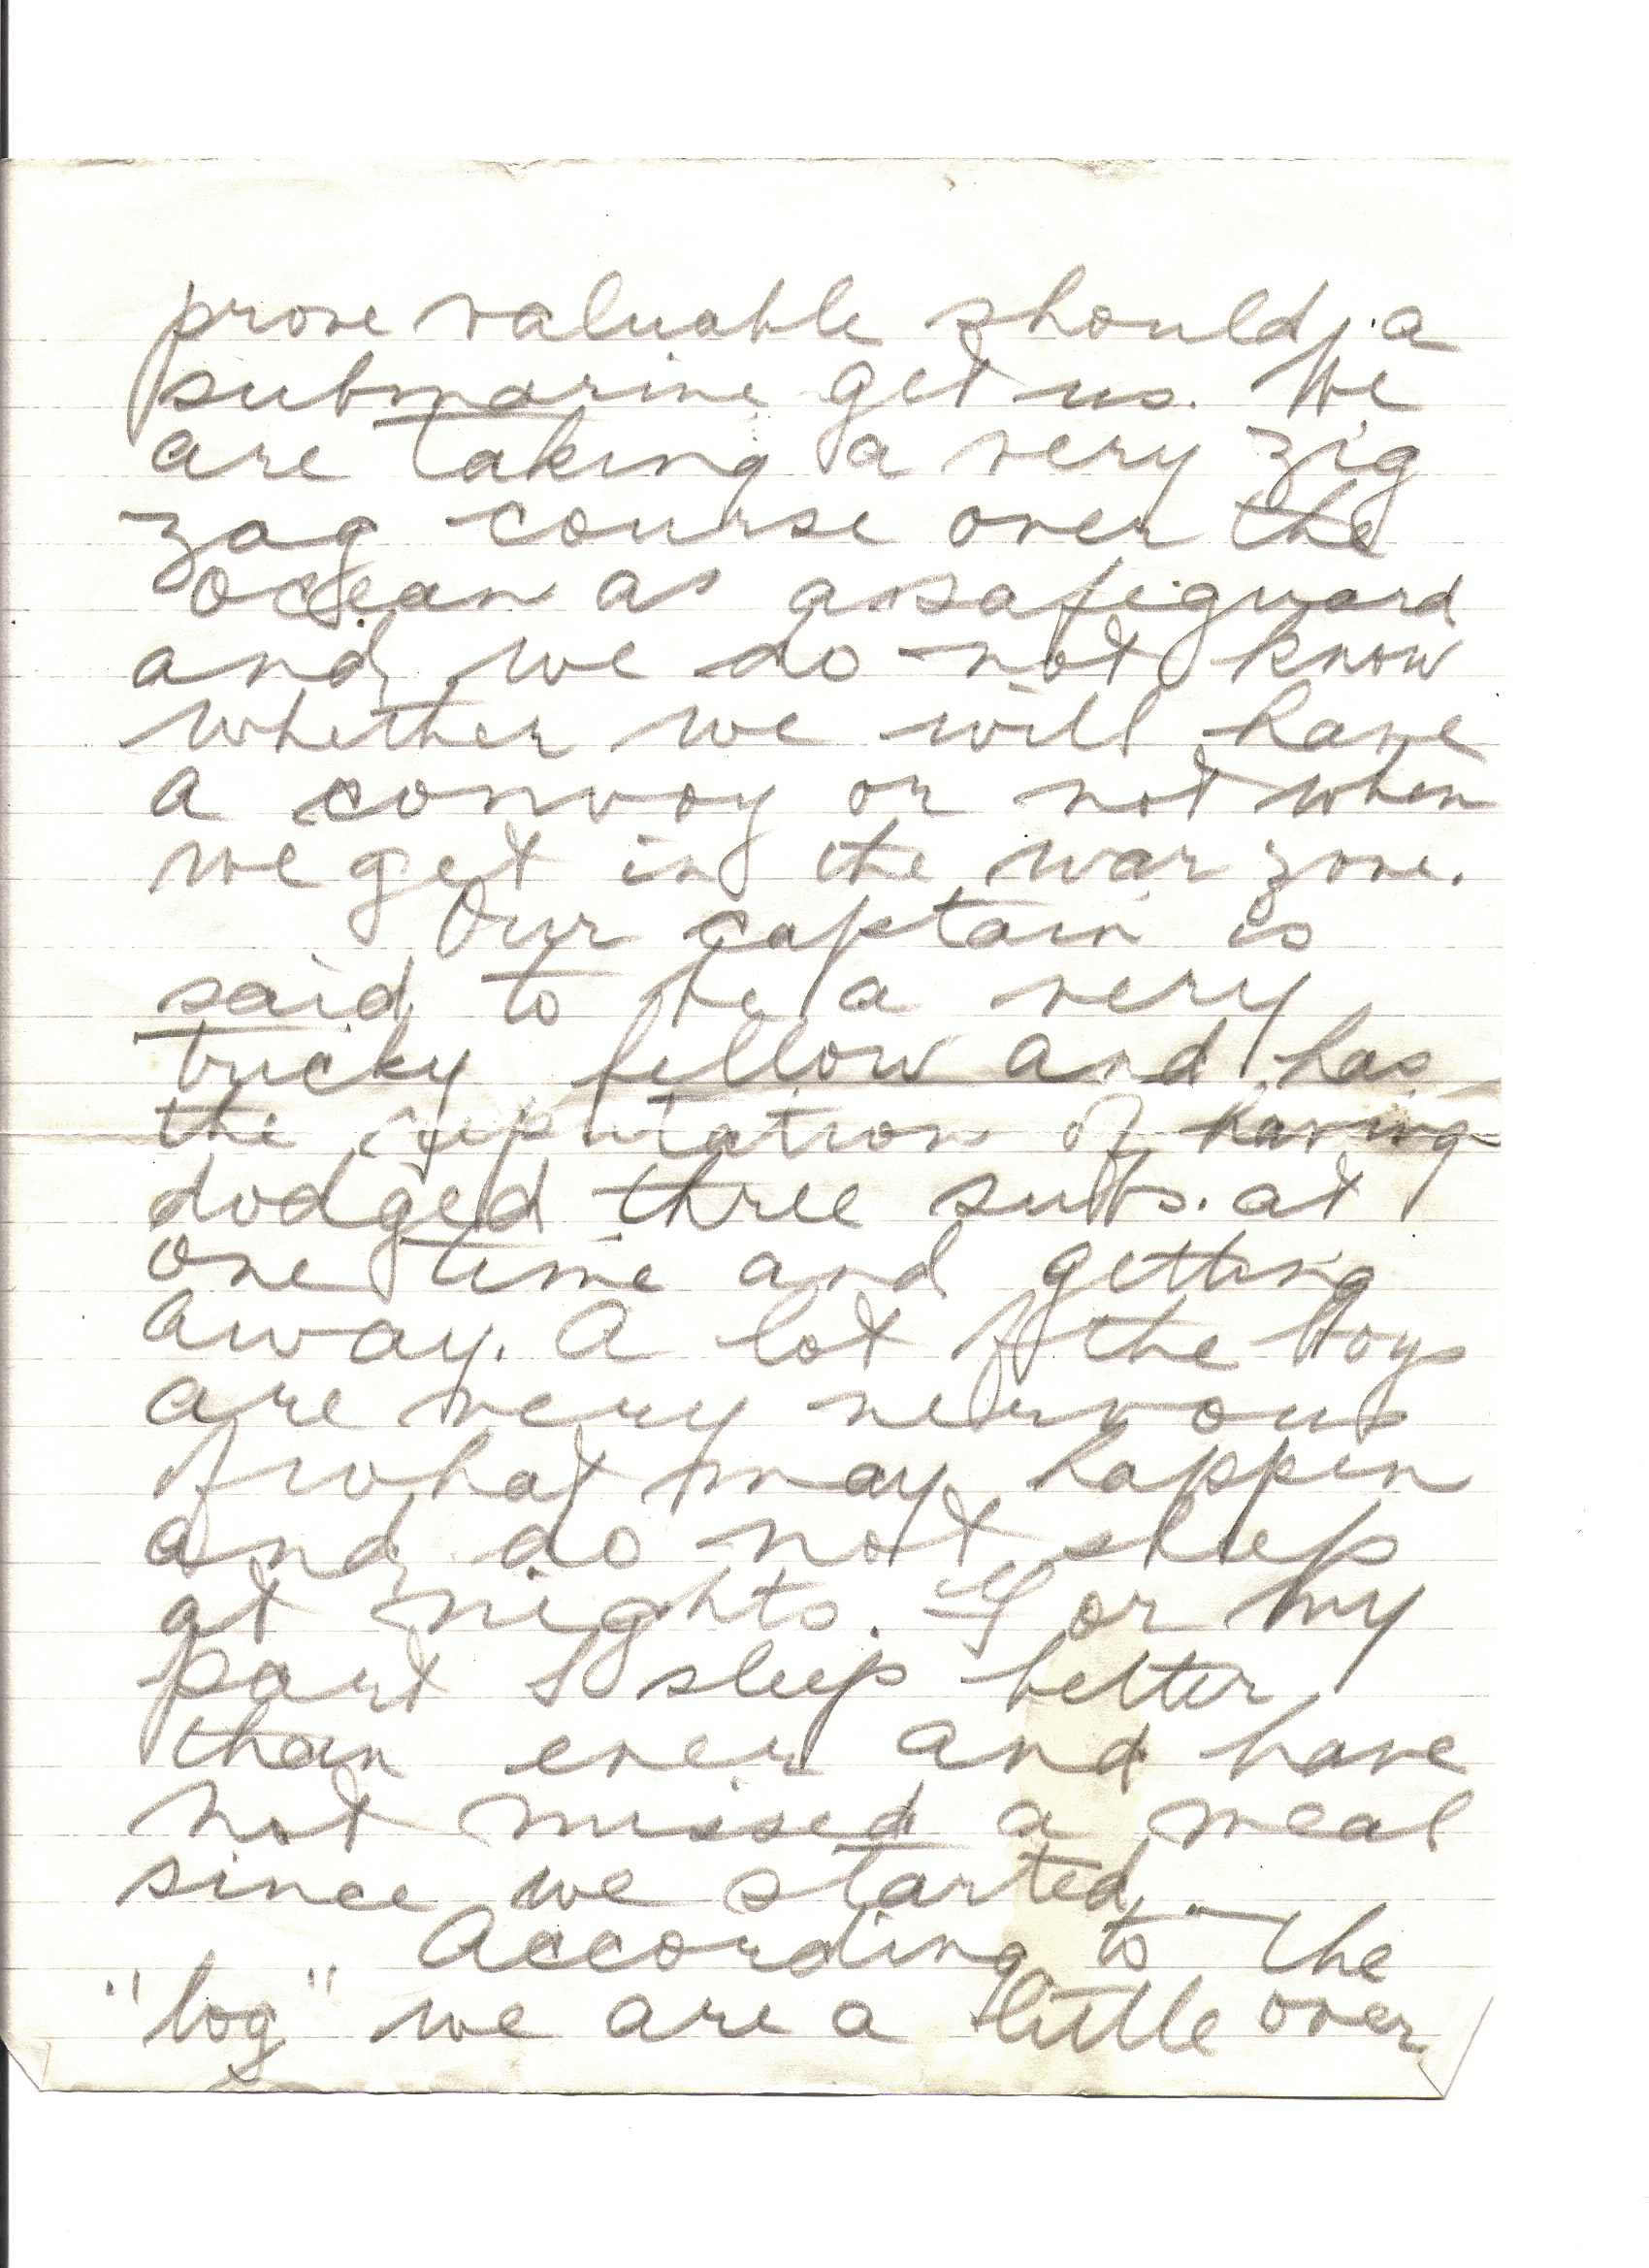 prove valuable should, a
submarine get us. We
are taking a very zig
zag course over the
ocean as a safeguard
and we do not know
whether we will have
a convoy or not when
we get in the war zone.
Our captain is
said to be a very
tricky fellow and has
the reputation of having
dodged three subs. at
one time and getting
away. A lot of the boys
are very nervous
of what may happen
and do not sleep
at nights. For my
part I sleep better
than ever and have
not missed a meal
since we started.
According to the
"log" we are a little over